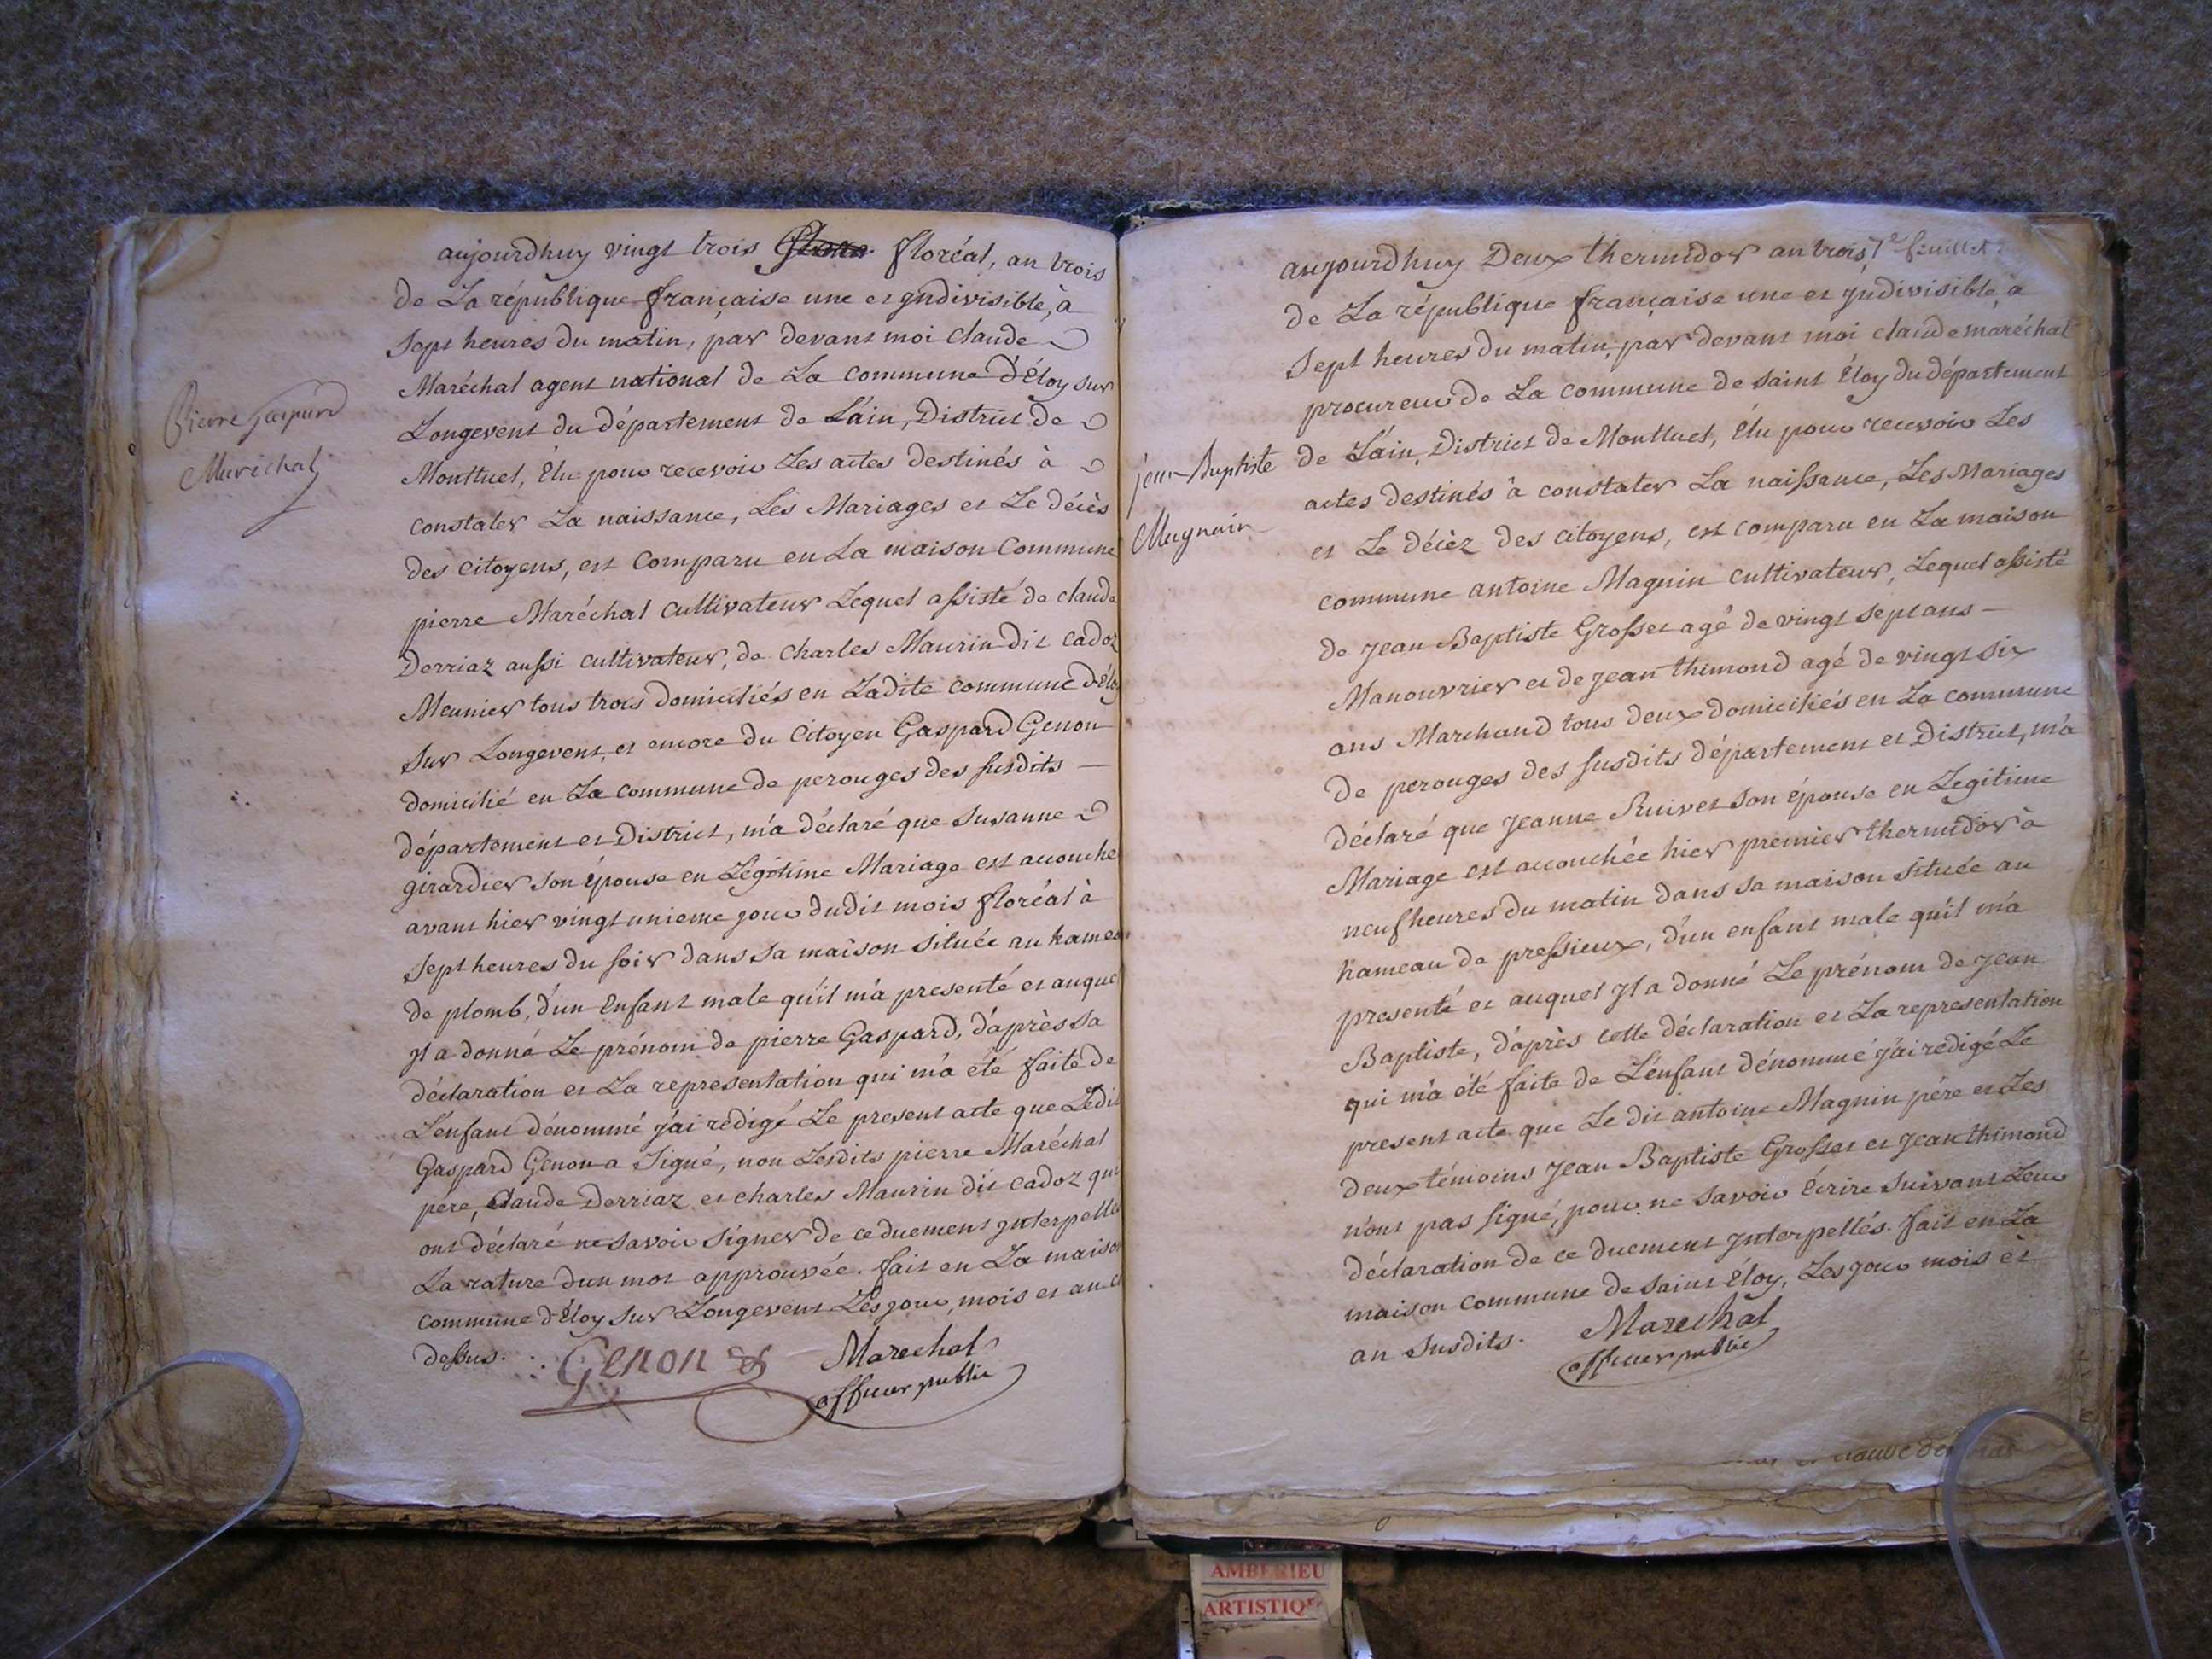 Pierre Gaspard
Maréchal
aujourdhuy vingt trois floréal, an trois
de La république française une et yndivisible, à
Sept heures du matin, par devant moi Claude
Maréchal agent national de La Commune d'Éloy sur
Longevent du département de L'ain, District de
Montluel, Élu pour recevoir Les actes destinés à
constater La naissance, Les Mariages et Le décès
des citoyens, est Comparu en La maison Commune
pierre Maréchal cultivateur Lequel assisté de claude
Derriaz aussi cultivateur, de Charles Maurin dit cadoz
Meunier tous trois domiciliés en Ladite commune d'Éloy
sur Longevent, et encore du Citoyen Gaspard Genon
domicilié en La commune de perouges des susdits
département et District, m'a déclaré que Susanne
girardier son épouse en Légitime Mariage est accouche
avant hier vingt unieme jour dudit mois floréal à
Sept heures du soir dans sa maison située au hameau
de plomb, d'un Enfant male qu'il m'a presenté et auquel
yl a donné Le prénom de pierre Gaspard, d'après sa
déclaration et La representation qui m'a été faite de
L'enfant dénommé j'ai rédigé Le present acte que Ledit
Gaspard Genon a Signé, non Lesdits pierre Maréchal
père, Claude Derriaz et charles Maurin dit cadoz qui
ont déclaré ne savoir signer de ce duement ynterpellés
La rature d'un mot approuvée. fait en La maison
commune d'Éloy sur Longevent Les jour, mois et an ci
dessus.
Genon
Marechal
officier public
jean-Baptiste
Magnin
aujourdhuy Deux thermidor an trois, 7e feuillet
de La république française une et yndivisible, à
Sept heures du matin, par devant moi claude maréchal
procureur de La commune de saint Éloy du département
de L'ain, District de Montluel, élu pour recevoir Les
actes destinés à constater La naissance, Les Mariages
et Le décèz des citoyens, est comparu en La maison
commune antoine Magnin cultivateur, Lequel assisté
de Jean Baptiste Grosset agé de vingt sept ans
Manouvrier et de Jean thimond agé de vingt six
ans Marchand tous deux domiciliés en La commune
de perouges des susdits département et District, m'a
déclaré que Jeanne Ruivet son épouse en Legitime
Mariage est accouchée hier premier thermidor à
neuf heures du matin dans sa maison située au
hameau de pressieux, d'un enfant male qu'il m'a
presenté et auquel yl a donné Le prénom de Jean
Baptiste, d'après cette déclaration et La representation
qui m'a été faite de L'enfant dénommé j'ai rédigé Le
present acte que Le dit antoine Magnin père et Les
deux témoins Jean Baptiste Grosset et Jean thimond
n'ont pas signé, pour ne savoir écrire suivant Leur
déclaration de ce duement ynterpellés. fait en La
maison commune de saint Éloy, Les jour mois et
an susdits.
Marechal
officier public
AMBERIEU
ARTISTIQUE